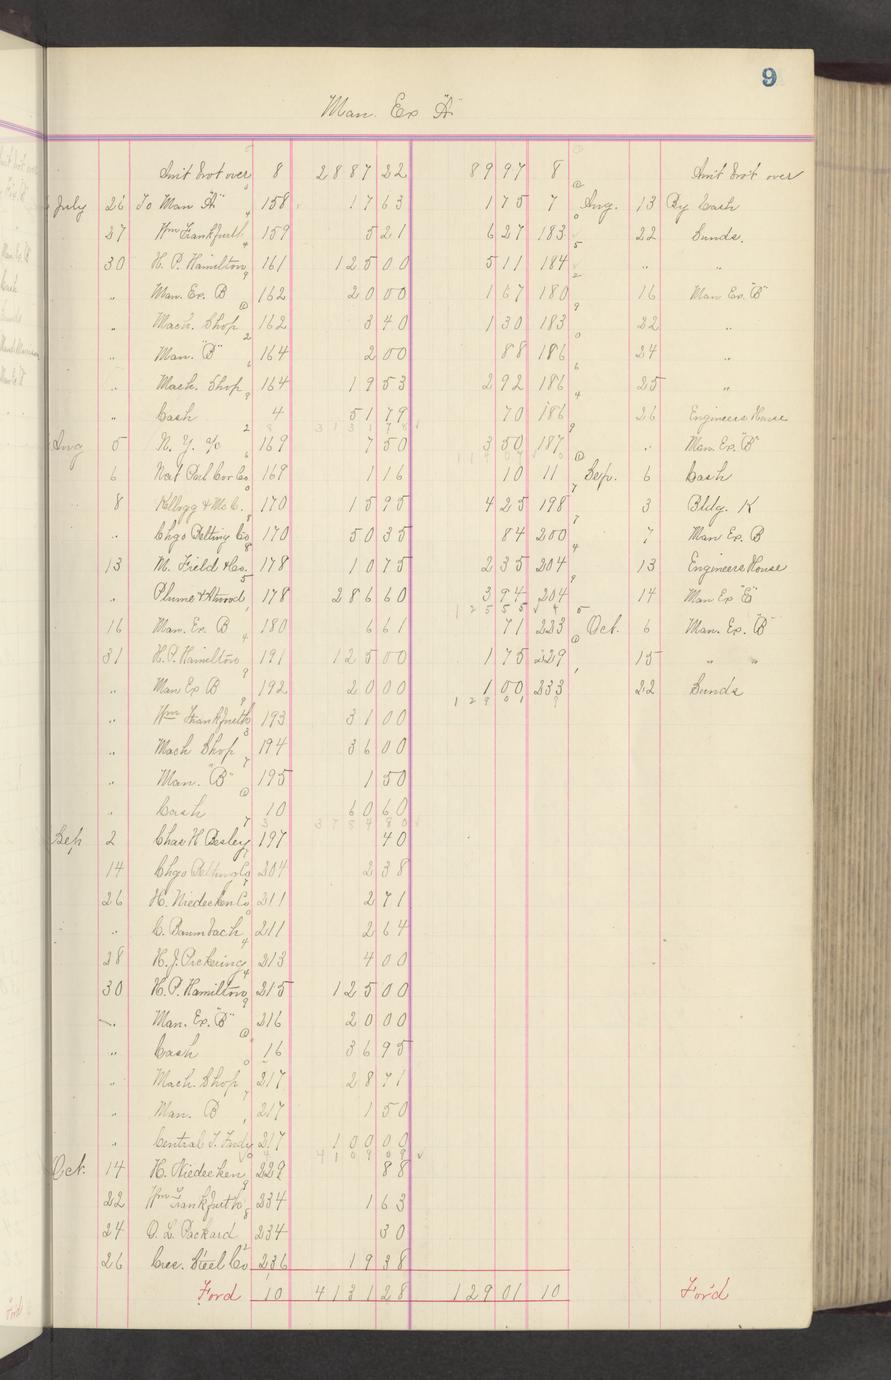 9
Man. Ex "A"
Am't Bro't over 8 2887 22 89 97 8 Am't Bro't over
July 26 To Man "A" 158 17 63 1 75 7 Aug. 13 By Cash
27 Wm Frankfurth 159 5 21 6 27 183 22 Sunds.
30 H. P. Hamilton 161 125 00 5 11 184 " "
" Man. Ex. B 162 20 00 1 67 180 16 Man Ex. "B"
" Mach. Shop 162 3 40 1 30 183 22 "
" Man. "B" 164 2 00 88 186 24 "
" Mach. Shop 164 19 53 2 92 186 25 "
" Cash 4 51 79 70 186 26 Engineers House
3131 78
Aug 5 N. Y. % 169 7 50 3 50 187 " Man. Ex. "B"
6 Nat Col Cor Co 169 1 16 10 11 Sep. 6 Cash
8 Kellogg & Mc C. 170 15 95 4 25 198 3 Bldg. K
" Chgo Belting Co 170 50 35 84 200 7 Man Ex. B
13 M. Field & Co. 178 10 75 2 35 204 13 Engineers House
" Plume & Atwood 178 286 60 3 94 204 14 Man Ex
125 55
16 Man. Ex. B 180 6 61 71 223 Oct. 6 Man. Ex. "B"
31 H. P. Hamilton 191 125 00 1 75 229 15 " "
" Man Ex B 192 20 00 1 00 233 22 Sunds
129 01
" Wm Frankfurth 193 31 00
" Mach Shop 194 36 00
" Man. "B" 195 1 50
" Cash 10 60 60
Sep 2 Chas H Besley 197 40
14 Chgo Belting Co 204 2 38
26 H. Niedecken Co 211 2 71
" C. Baumbach 211 2 64
28 H. J. Pickering 213 4 00
30 H. P. Hamilton 215 125 00
" Man. Ex. "B" 216 20 00
" Cash 16 36 95
" Mach. Shop 217 28 71
" Man. B 217 1 50
" Central T. Fndy 217 100 00
4109 09
Oct. 14 H. Niedecken 229 88
22 Wm Frankfurth 234 1 63
24 O. L. Packard 234 30
26 Cres. Steel Co 236 19 38
For'd 10 4131 28 129 01 10 For'd